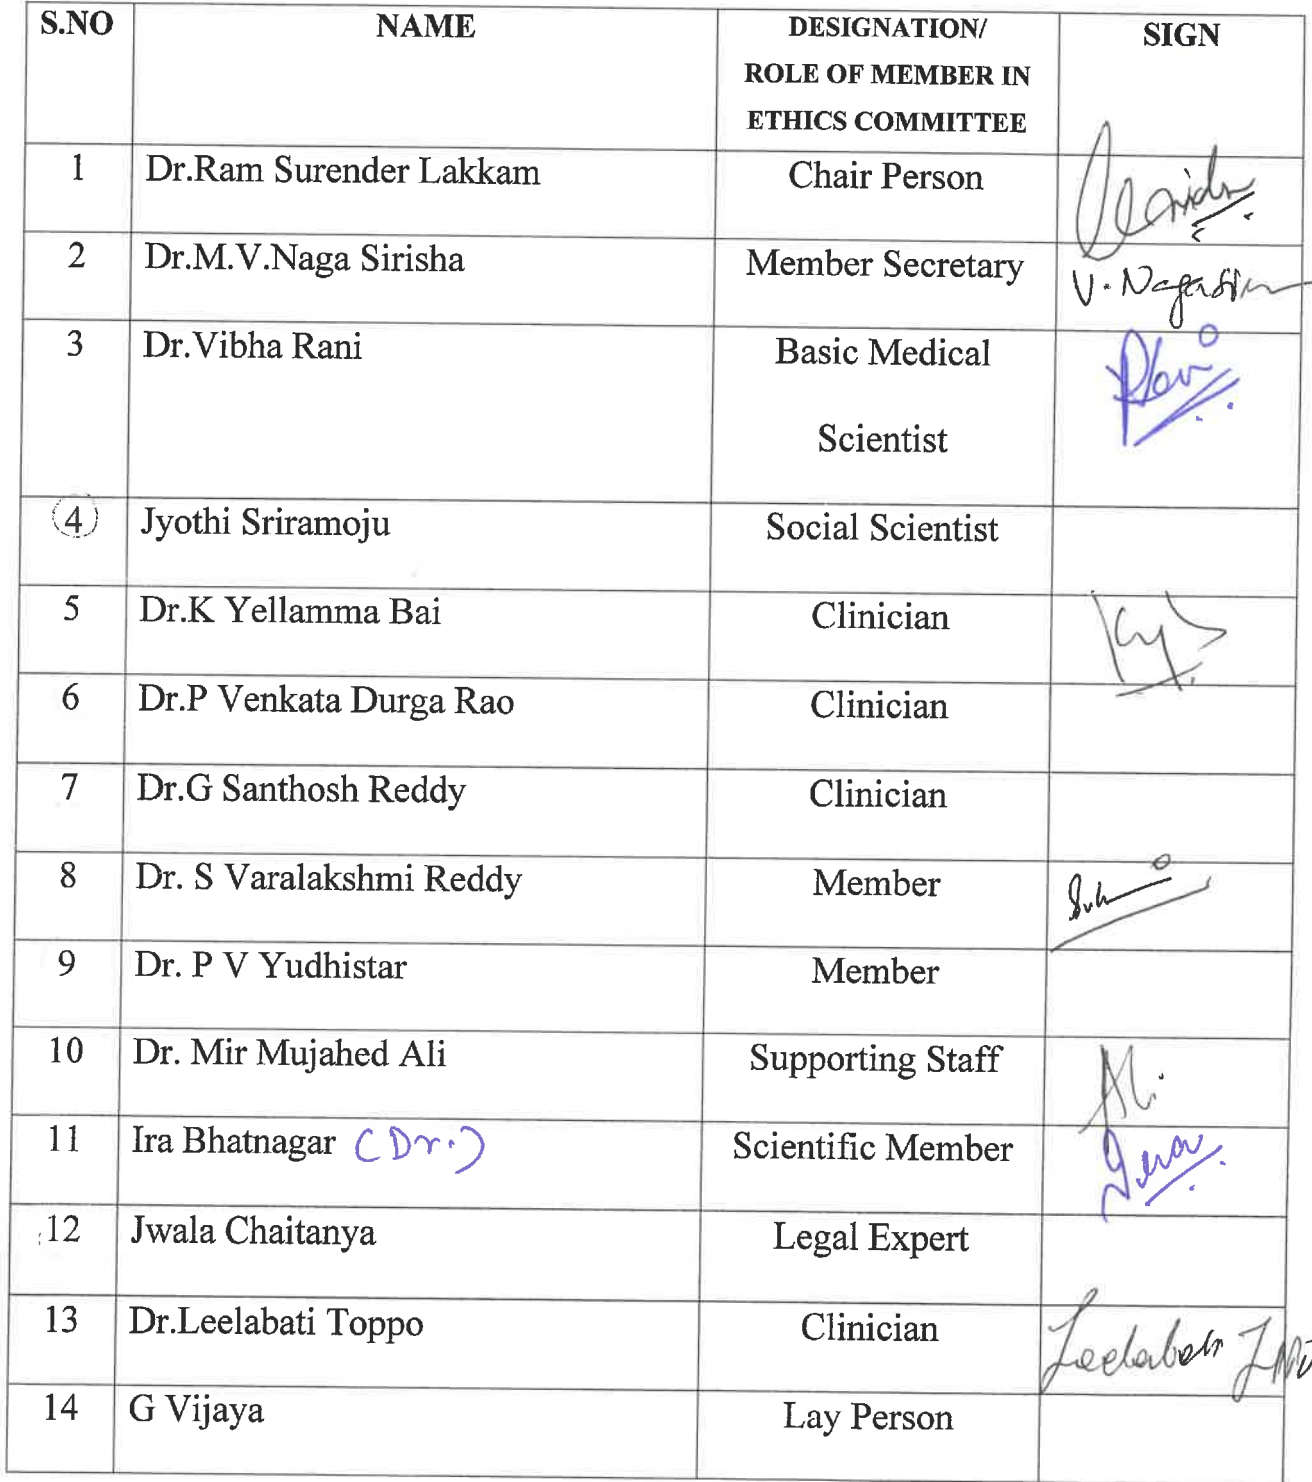 S.NO NAME DESIGNATION/ SIGN
ROLE OF MEMBER IN
ETHICS COMMITTEE
1 Dr.Ram Surender Lakkam Chair Person
2 Dr.M.V.Naga Sirisha Member Secretary
3 Dr.Vibha Rani Basic Medical
Scientist
4 Jyothi Sriramoju Social Scientist
5 Dr.K Yellamma Bai Clinician
6 Dr.P Venkata Durga Rao Clinician
7 Dr.G Santhosh Reddy Clinician
8 Dr. S Varalakshmi Reddy Member
9 Dr. P V Yudhistar Member
10 Dr. Mir Mujahed Ali Supporting Staff Ali
11 Ira Bhatnagar (Dr.) Scientific Member
12 Jwala Chaitanya Legal Expert
13 Dr.Leelabati Toppo Clinician
14 G Vijaya Lay Person